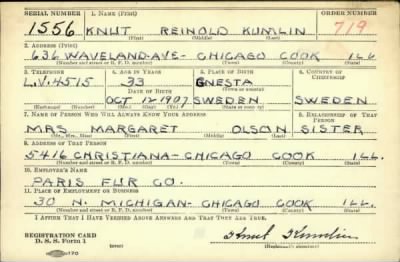 SERIAL NUMBER 1. NAME (Print) ORDER NUMBER
1556 KNUT REINOLD KUMLIN 719
(First) (Middle) (Last)
2. ADDRESS (Print)
636 WAVELAND-AVE- CHICAGO COOK ILL
(Number and street or R. F. D. number) (Town) (County) (State)
3. TELEPHONE 4. AGE IN YEARS 5. PLACE OF BIRTH 6. COUNTRY OF CITIZENSHIP
L.V.4515 33 GNESTA
DATE OF BIRTH (Town or county)
OCT 12 1907 SWEDEN SWEDEN
(Exchange) (Number) (Mo.) (Day) (Yr.) (State or country)
7. NAME OF PERSON WHO WILL ALWAYS KNOW YOUR ADDRESS 8. RELATIONSHIP OF THAT PERSON
MRS MARGARET OLSON SISTER
(Mr., Mrs., Miss) (First) (Middle) (Last)
9. ADDRESS OF THAT PERSON
5416 CHRISTIANA- CHICAGO COOK ILL.
(Number and street or R. F. D. number) (Town) (County) (State)
10. EMPLOYER'S NAME
PARIS FUR CO.
11. PLACE OF EMPLOYMENT OR BUSINESS
30 N. MICHIGAN- CHICAGO COOK ILL.
(Number and street or R. F. D. number) (Town) (County) (State)
I AFFIRM THAT I HAVE VERIFIED ABOVE ANSWERS AND THAT THEY ARE TRUE.
REGISTRATION CARD
D. S. S. Form 1
Knut Kumlin
(Registrant's signature)